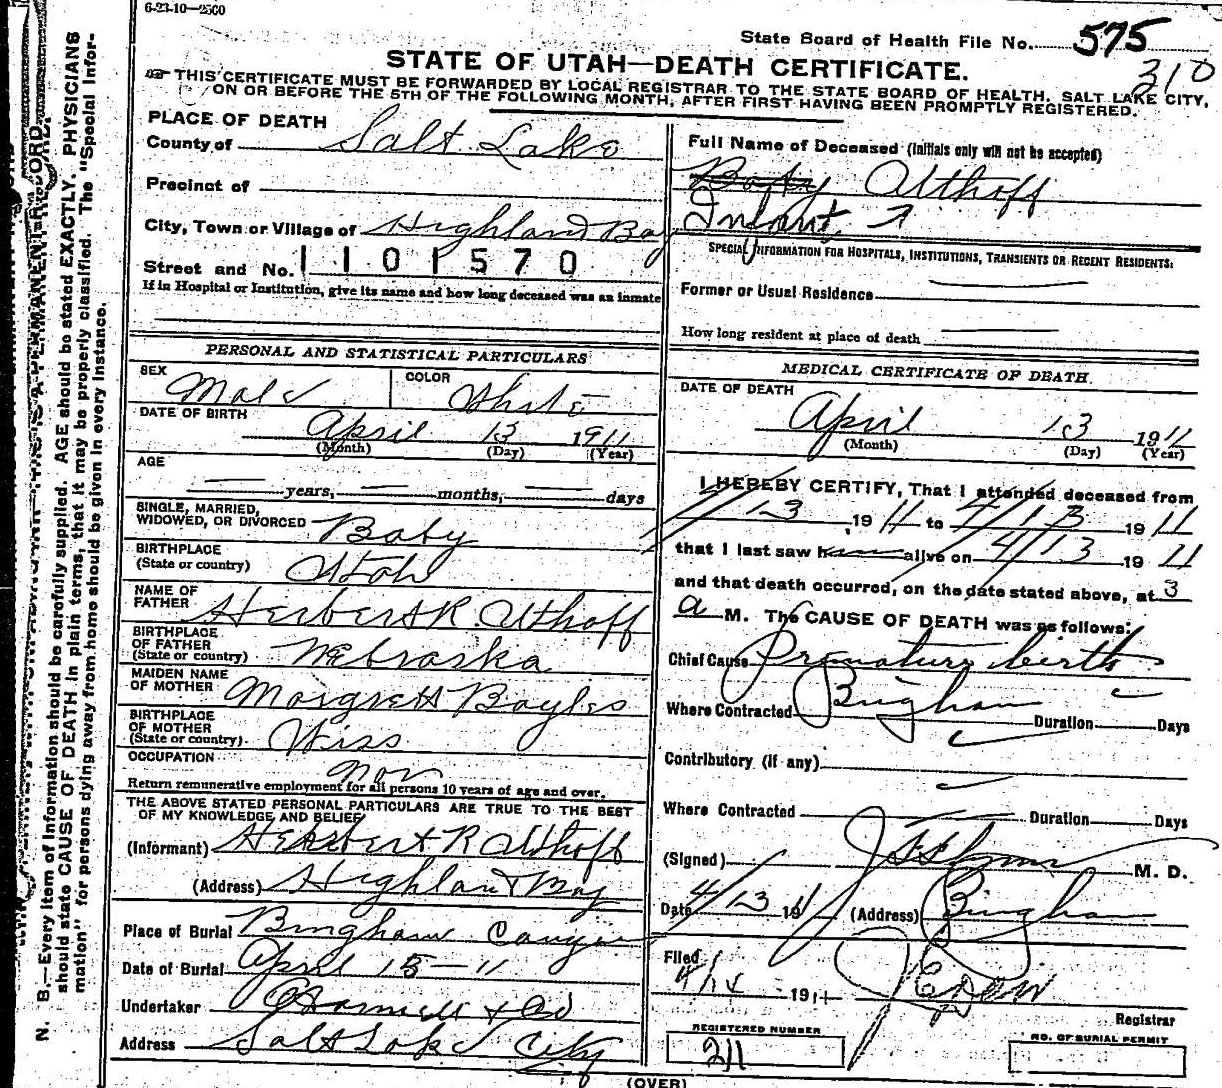 6-23-10—2500
State Board of Health File No. 575
310
STATE OF UTAH—DEATH CERTIFICATE.
THIS CERTIFICATE MUST BE FORWARDED BY LOCAL REGISTRAR TO THE STATE BOARD OF HEALTH, SALT LAKE CITY,
ON OR BEFORE THE 5TH OF THE FOLLOWING MONTH, AFTER FIRST HAVING BEEN PROMPTLY REGISTERED.
PLACE OF DEATH
County of Salt Lake
Precinct of
City, Town or Village of Highland Boy
Street and No. 1101570
If in Hospital or Institution, give its name and how long deceased was an inmate
Full Name of Deceased (Initials only will not be accepted)
Baby Althoff
Infant
SPECIAL INFORMATION FOR HOSPITALS, INSTITUTIONS, TRANSIENTS OR RECENT RESIDENTS:
Former or Usual Residence
How long resident at place of death
PERSONAL AND STATISTICAL PARTICULARS
SEX Male COLOR White
DATE OF BIRTH
April 13 1911
(Month) (Day) (Year)
AGE
years, months, days
SINGLE, MARRIED,
WIDOWED, OR DIVORCED Baby
BIRTHPLACE
(State or country) Utah
NAME OF
FATHER Herbert R. Althoff
BIRTHPLACE
OF FATHER
(State or country) Nebraska
MAIDEN NAME
OF MOTHER Margret H Bayles
BIRTHPLACE
OF MOTHER
(State or country) Wiss
OCCUPATION
Non
Return remunerative employment for all persons 10 years of age and over.
THE ABOVE STATED PERSONAL PARTICULARS ARE TRUE TO THE BEST
OF MY KNOWLEDGE AND BELIEF
(Informant) Herbert R Althoff
(Address) Highland Boy
Place of Burial Bingham Canyon
Date of Burial April 15-11
Undertaker & Co
Address Salt Lake City
MEDICAL CERTIFICATE OF DEATH
DATE OF DEATH
April 13 1911
(Month) (Day) (Year)
I HEREBY CERTIFY, That I attended deceased from
4/13 1911 to 4/13 1911
that I last saw h alive on 4/13 1911
and that death occurred, on the date stated above, at 3
a M. The CAUSE OF DEATH was as follows:
Chief Cause Premature birth
Where Contracted Bingham Duration Days
Contributory (if any)
Where Contracted Duration Days
(Signed) M. D.
Date 4/13 1911 (Address) Bingham
Filed
4/14 1911
Registrar
REGISTERED NUMBER
211
NO. OF BURIAL PERMIT
(OVER)
N. B.—Every item of information should be carefully supplied. AGE should be stated EXACTLY. PHYSICIANS
should state CAUSE OF DEATH in plain terms, that it may be properly classified. The "Special Infor-
mation" for persons dying away from home should be given in every instance.